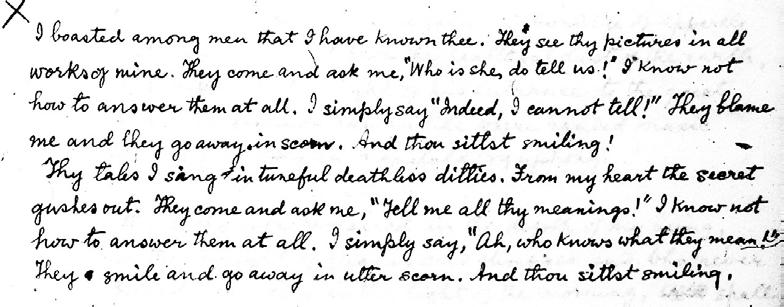 I boasted among men that I have known thee. They see thy pictures in all
works of mine. They come and ask me, "Who is she, do tell us!" I know not
how to answer them at all. I simply say "Indeed, I cannot tell!" They blame
me and they go away in scorn. And thou sittst smiling!
Thy tales I sang in tuneful deathless ditties. From my heart the secret
gushes out. They come and ask me, "Tell me all thy meanings!" I know not
how to answer them at all. I simply say, "Ah, who knows what they mean!"
They smile and go away in utter scorn. And thou sittst smiling.